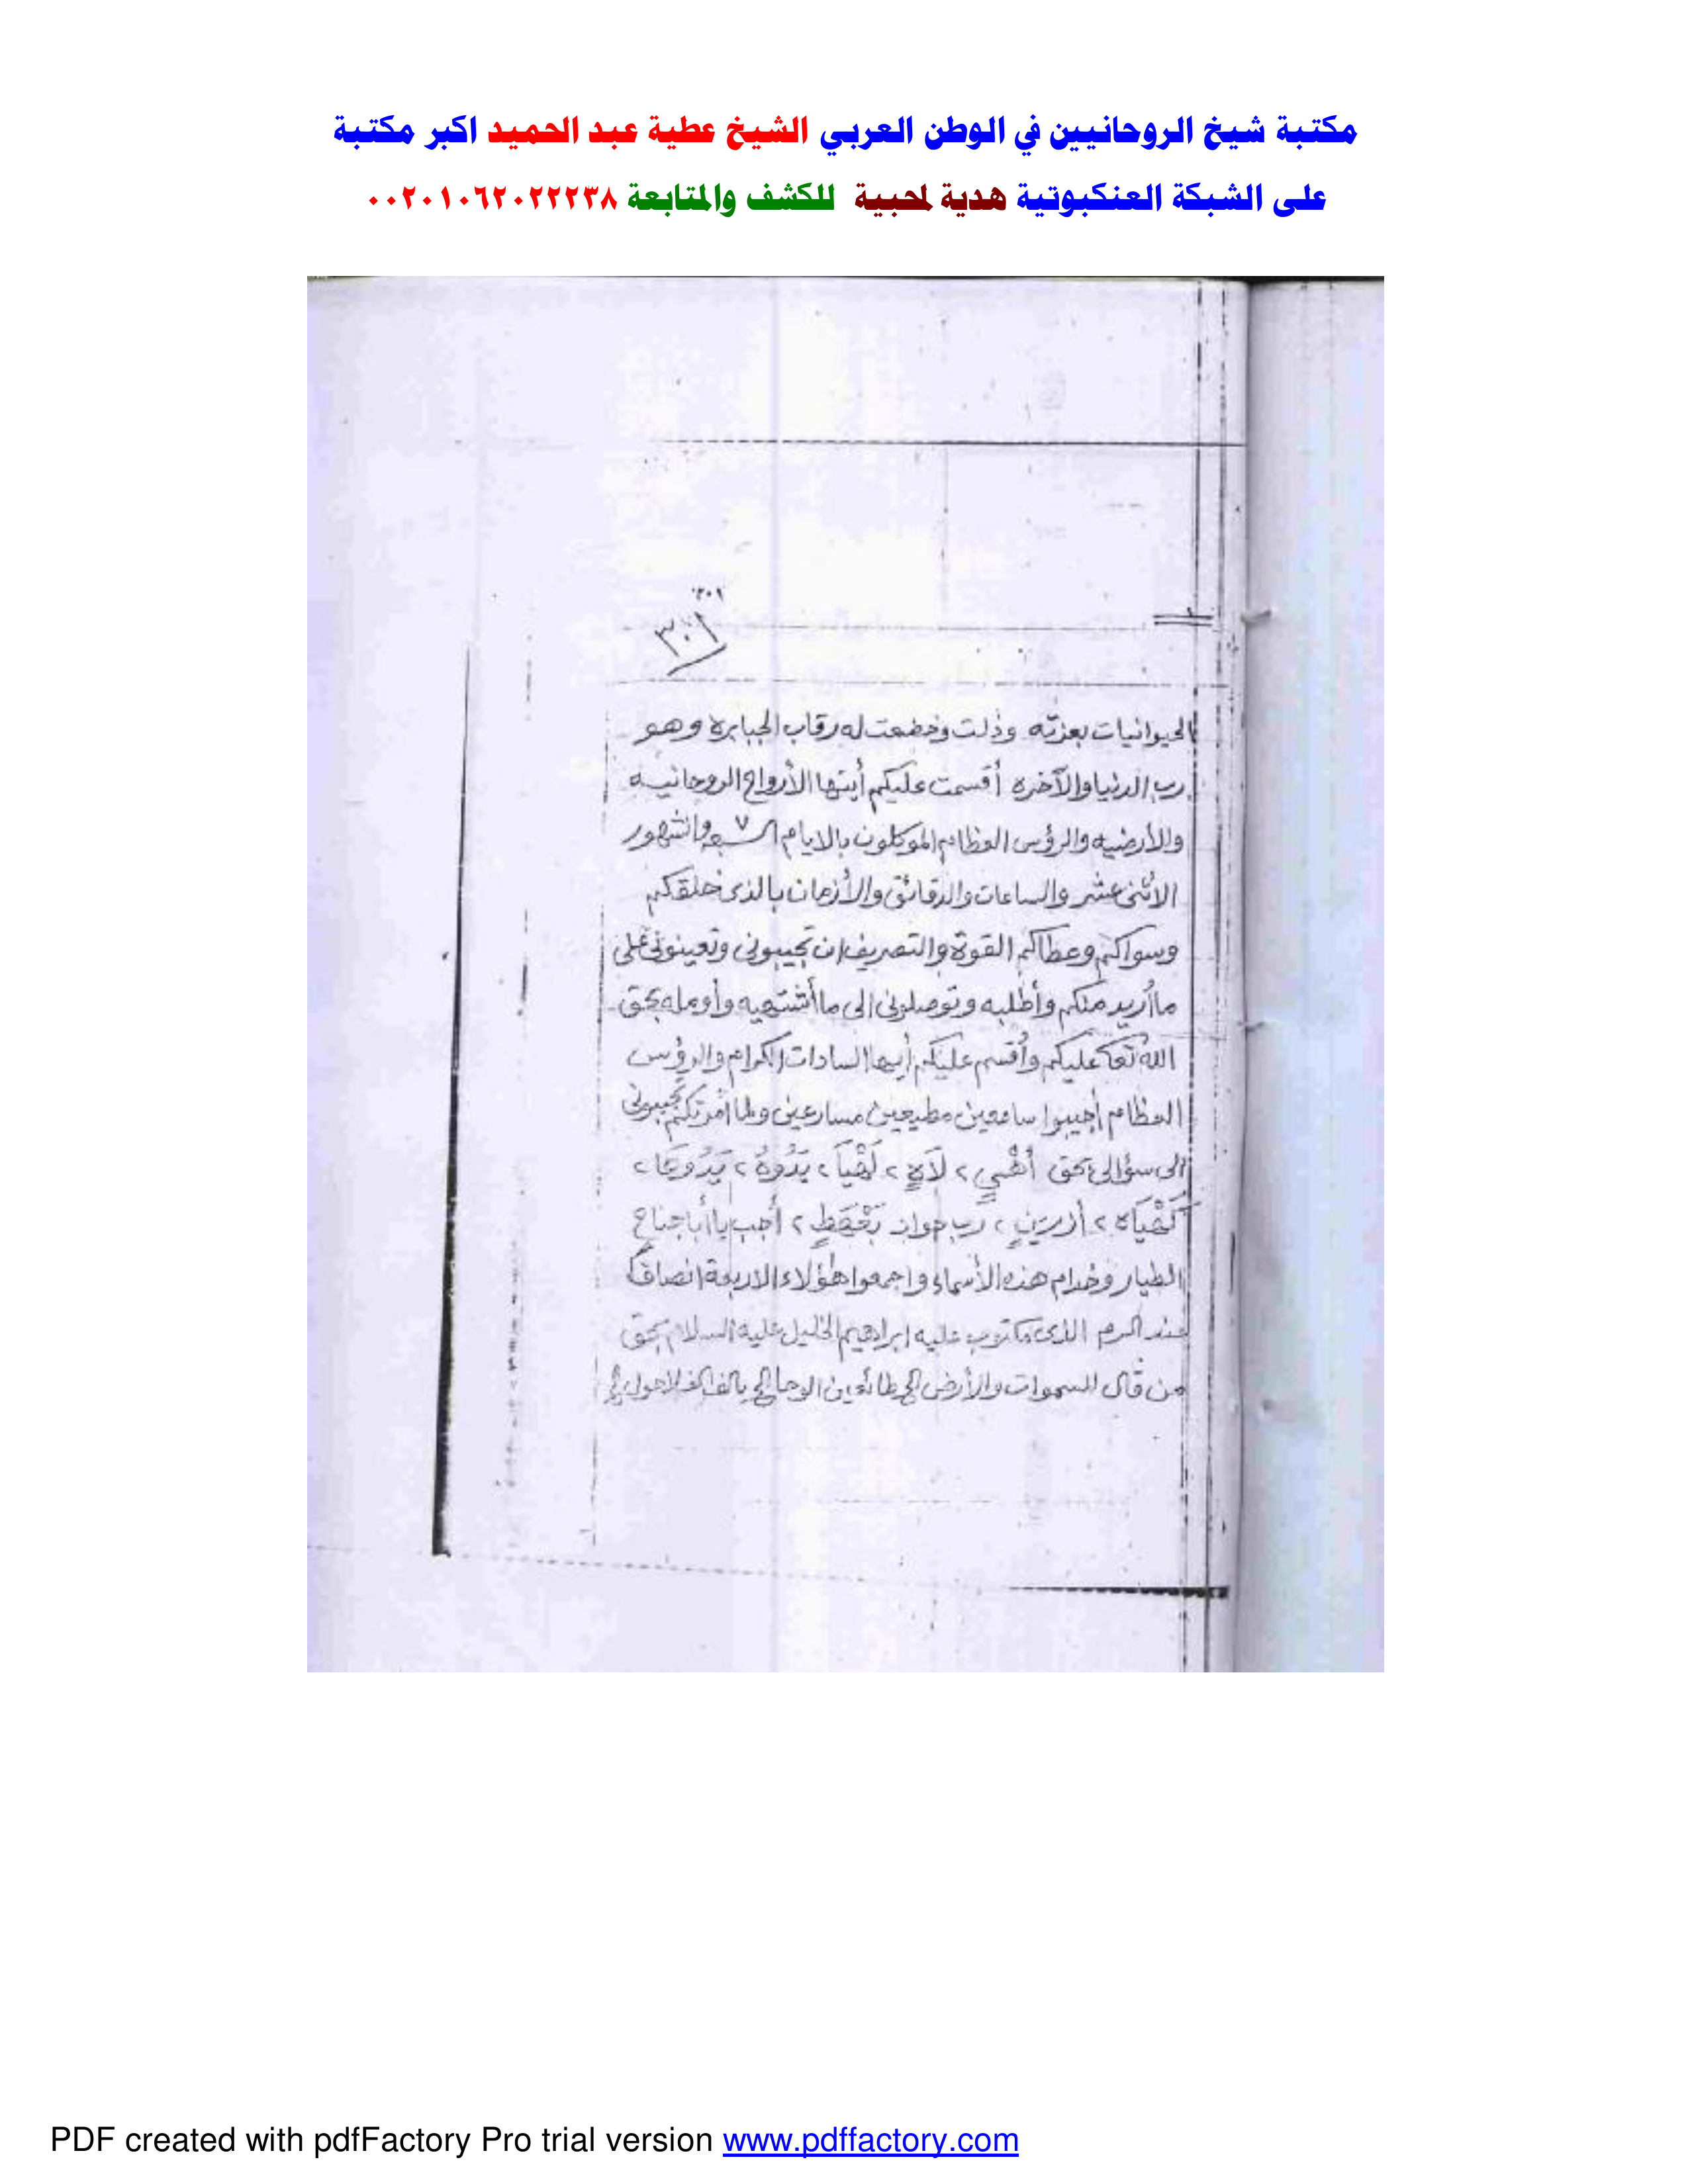 مكتبة شيخ الروحانيين في الوطن العربي الشيخ عطية عبد الحميد اكبر مكتبة
على الشبكة العنكبوتية هدية لمحبية للكشف والمتابعة ٠٠٢٠١٠٦٢٠٢٢٢٣٨
٣٠١
الحيوانيات بعزته وذلت وخضعت له رقاب الجبابرة وهو
رب الدنيا والآخره أقسمت عليكم أيتها الأرواح الروحانيه
والأرضيه والرؤس العظام الموكلون بالايام السبعه ٧ والشهور
الاثنى عشر والساعات والدقائق والأزمان بالذى خلقكم
وسواكم وعطاكم القوة والتصريف ان تجيبونى وتعينونى على
ما أريد منكم وأطلبه وتوصلونى الى ما أشتهيه وأومله بحق
الله تعا عليكم وأقسم عليكم أيها السادات الكرام والرؤس
العظام أجيبوا سامعين مطيعين مسارعين ولما أمرتكم تجيبونى
الى سؤالى بحق أهْيٍ ٢ لَاهٍ ٢ لَهْيَا ٢ يَدُوهُ ٢ يَدُوهَا ٢
كَهْيَاه ٢ رب جواد ٢ أجب يا أبا جناح
الطيار وخدام هذه الأسماء واجمعوا هؤلاء الاربعة
عند الذى مكتوب عليه ابراهيم الخليل عليه السلام بحق
من قال للسموات والأرض طائعين الوحا بالف الف لاحول
PDF created with pdfFactory Pro trial version www.pdffactory.com